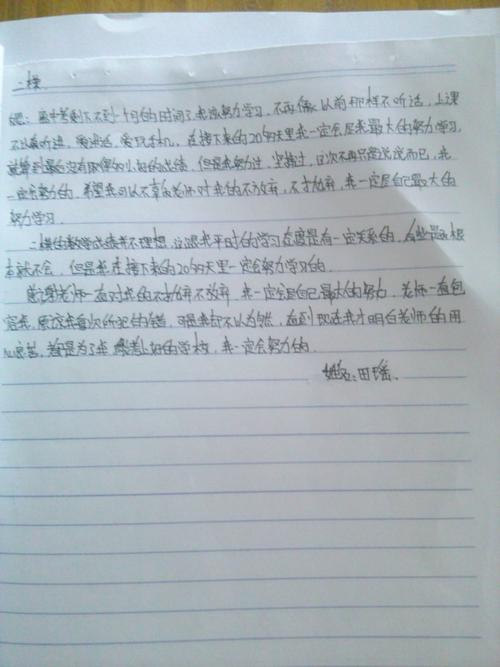 二模
吧：离中考剩下不到一个月的时间了我该努力学习，不再像以前那样不听话，上课
不认真听讲，爱讲话，爱玩手机，在接下来的20多天里我一定会尽我最大的努力学习，
就算到最后没有取得的小好的成绩，但是我努力过，坚持过，这次不再只是说说而已，我
一定会努力的，希望我可以不辜负老师对我的不放弃，不抛弃，我一定尽自己最大的
努力学习。
二模的数学成绩并不理想，这跟我平时的学习态度是有一定关系的，有些题根
本就不会，但是我在接下来的20多天里一定会努力学习的。
感谢老师一直对我的不抛弃不放弃，我一定会尽自己最大的努力，老师一直包
容我，原谅我每次所犯的错，可是我却不以为然，直到现在我才明白老师的用
心良苦，都是为了我能考上好的学校，我一定会努力的。
姓名：田瑶